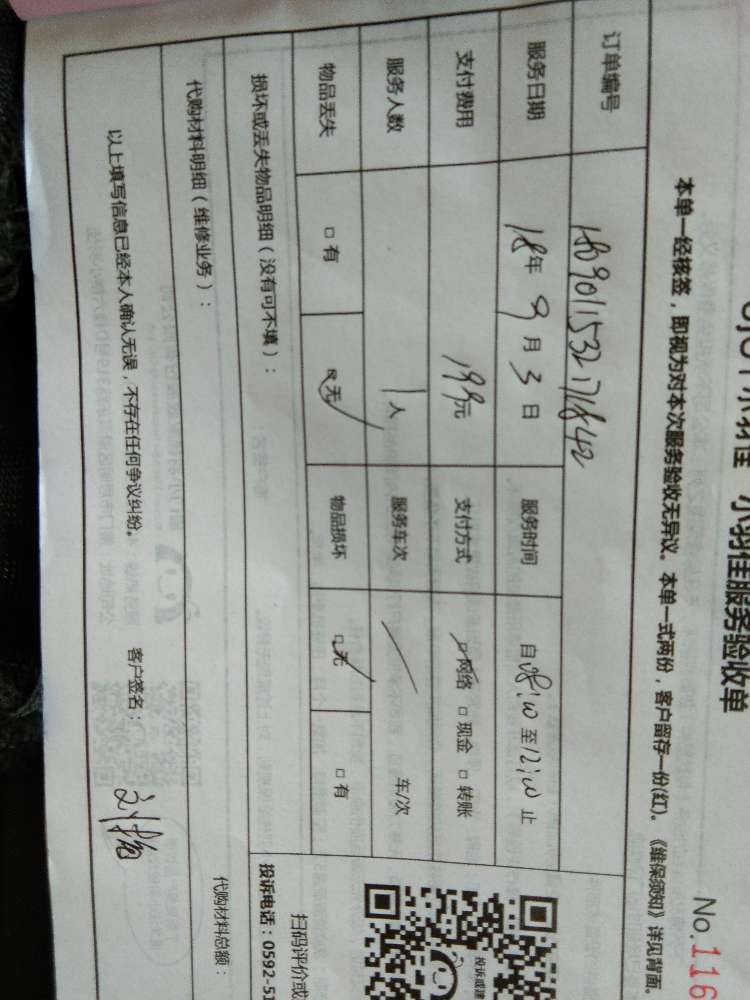 小羽佳 小羽佳服务验收单
No.116
本单一经核签，即视为对本次服务验收无异议。本单一式两份，客户留存一份(红)。《维保须知》详见背面。
订单编号 180901153217842
服务日期 18年9月3日 服务时间 自08:00至12:00止
支付费用 199元 支付方式 ☑网络 □现金 □转账
服务人数 1人 服务车次 / 车/次
物品丢失 □有 ☑无 物品损坏 ☑无 □有
损坏或丢失物品明细（没有可不填）：
代购材料明细（维修业务）：
代购材料总额：
以上填写信息已经本人确认无误，不存在任何争议纠纷。
客户签名：
扫码评价或
投诉电话：0592-51